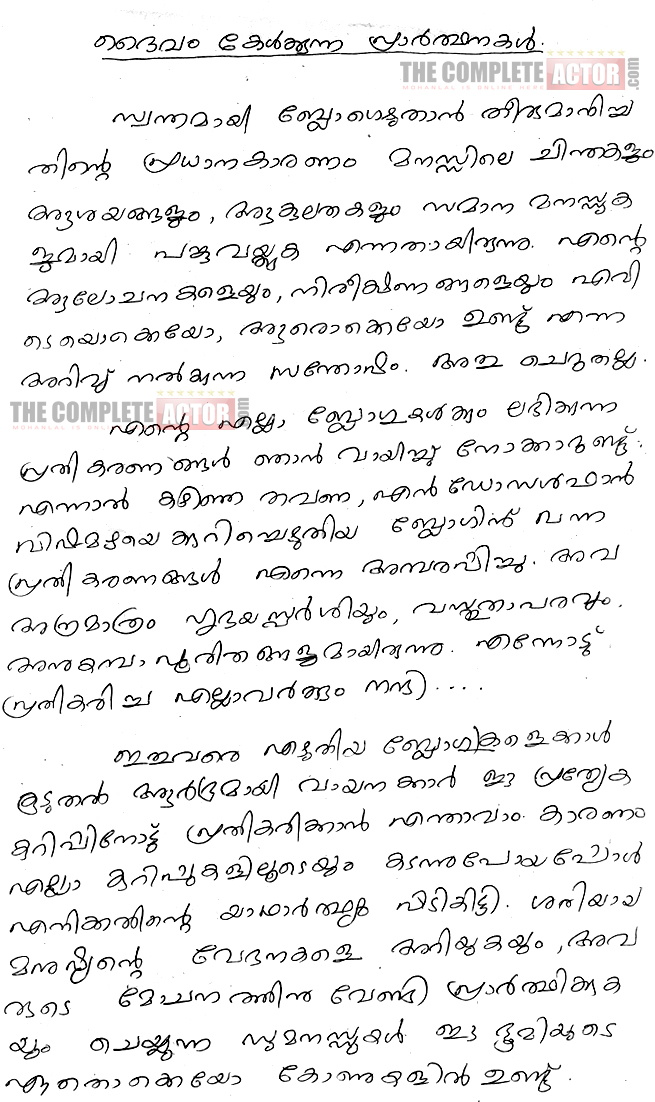 ദൈവം കേൾക്കുന്ന പ്രാർത്ഥനകൾ.
THE COMPLETE ACTOR.com
MOHANLAL IS ONLINE HERE
സ്വന്തമായി ബ്ലോഗെഴുതാൻ തീരുമാനിച്ച
തിന്റെ പ്രധാനകാരണം മനസ്സിലെ ചിന്തകളും
ആശയങ്ങളും, ആകുലതകളും സമാന മനസ്സുക
ളുമായി പങ്കുവയ്ക്കുക എന്നതായിരുന്നു. എന്റെ
ആലോചനകളെയും, നിരീക്ഷണങ്ങളെയും എവി
ടെയൊക്കെയോ, ആരൊക്കെയോ ഉണ്ട് എന്ന
അറിവ് നൽകുന്ന സന്തോഷം. അത് ചെറുതല്ല.
THE COMPLETE ACTOR.com
MOHANLAL IS ONLINE HERE
എന്റെ എല്ലാ ബ്ലോഗുകൾക്കും ലഭിക്കുന്ന
പ്രതികരണങ്ങൾ ഞാൻ വായിച്ചു നോക്കാറുണ്ട്.
എന്നാൽ കഴിഞ്ഞ തവണ, എൻഡോസൾഫാൻ
വിഷമഴയെ കുറിച്ചെഴുതിയ ബ്ലോഗിന് വന്ന
പ്രതികരണങ്ങൾ എന്നെ അമ്പരപ്പിച്ചു. അവ
അത്രമാത്രം ഹൃദയസ്പർശിയും, വസ്തുതാപരവും.
അനുകമ്പാപൂരിതങ്ങളുമായിരുന്നു. എന്നോട്
പ്രതികരിച്ച എല്ലാവർക്കും നന്ദി....
ഇതുവരെ എഴുതിയ ബ്ലോഗുകളെക്കാൾ
കൂടുതൽ ആർദ്രമായി വായനക്കാർ ഈ പ്രത്യേക
കുറിപ്പിനോട് പ്രതികരിക്കാൻ എന്താവാം കാരണം
എല്ലാ കുറിപ്പുകളിലൂടെയും കടന്നുപോയപ്പോൾ
എനിക്കതിന്റെ യാഥാർത്ഥ്യം പിടികിട്ടി. ശരിയായ
മനുഷ്യന്റെ വേദനകളെ അറിയുകയും, അവ
രുടെ മോചനത്തിനു വേണ്ടി പ്രാർത്ഥിക്കുക
യും ചെയ്യുന്ന സുമനസ്സുകൾ ഈ ഭൂമിയുടെ
ഏതൊക്കെയോ കോണുകളിൽ ഉണ്ട്.